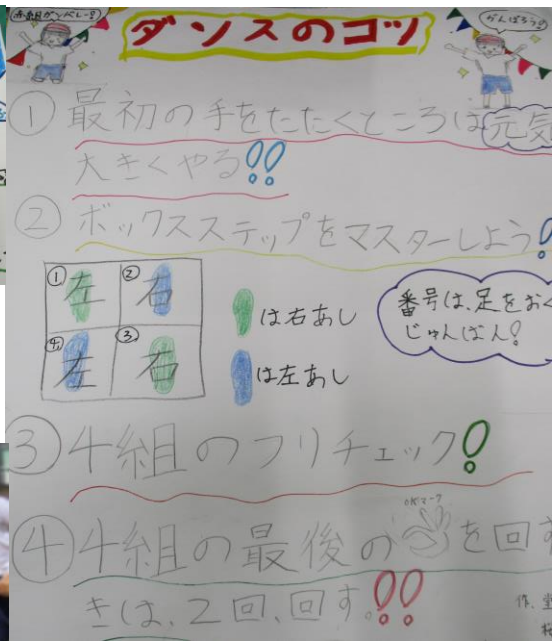 赤組ガンバレー!
ダンスのコツ
がんばろう!
① 最初の手をたたくところは元気
大きくやる!!
② ボックスステップをマスターしよう!
① 左 ② 右
④ 左 ③ 右
は右あし
は左あし
番号は、足をおく
じゅんばん!
③ 4組のフリチェック!
OKマーク
④ 4組の最後の を回す
きは、2回、回す!!
作.